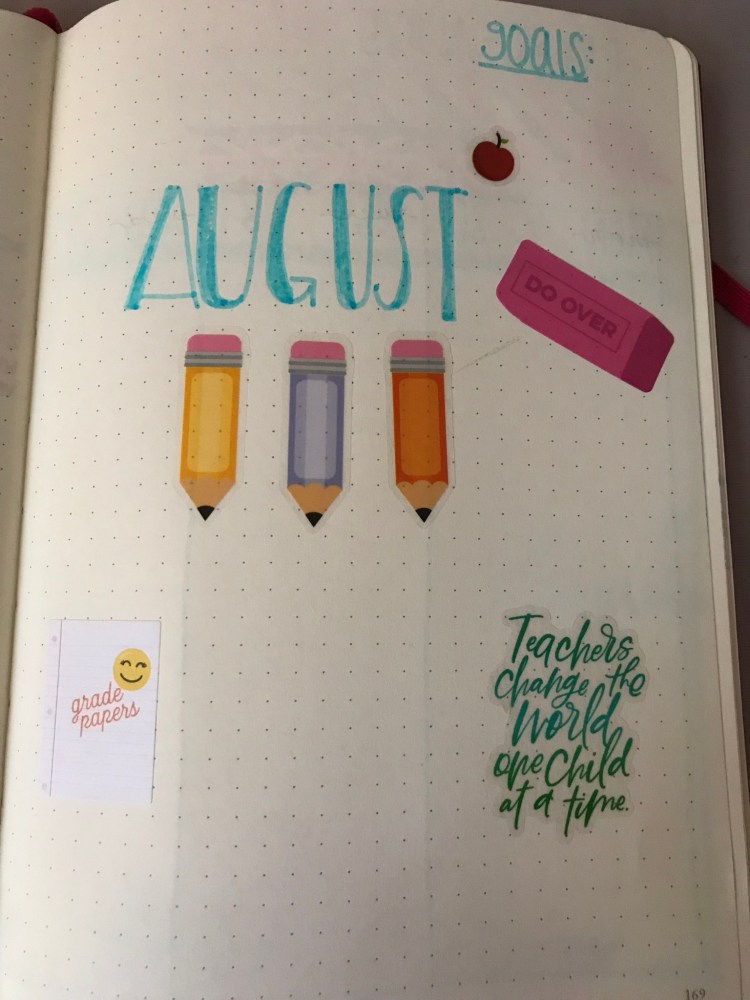 goals:
AUGUST
DO OVER
grade
papers
Teachers
change the
world
one child
at a time.
169